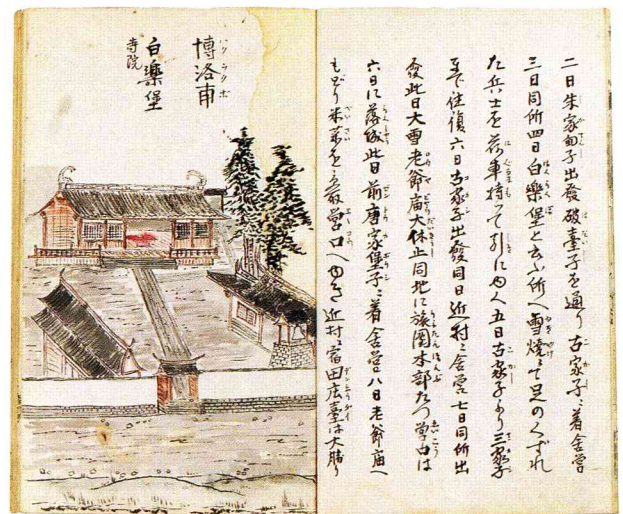 二日朱家甸子出發破臺子を通り古家子ニ着舍營
三日同所四日白樂堡と云ふ所へ雪燒ニて足のくずれ
た兵士を荷車持つて引に由く五日古家子より三家子
まで往復六日古家子出發同日近村ニ舍營七日同所出
發此日大雪老爺庙大休止同地に旅團本部たつ營口は
六日に落城此日前唐家堡子ニ着舍營八日老爺庙へ
もどり米菜を営口へゆき近村ニ宿田庄臺は大勝り
博洛甫
白樂堡
寺院